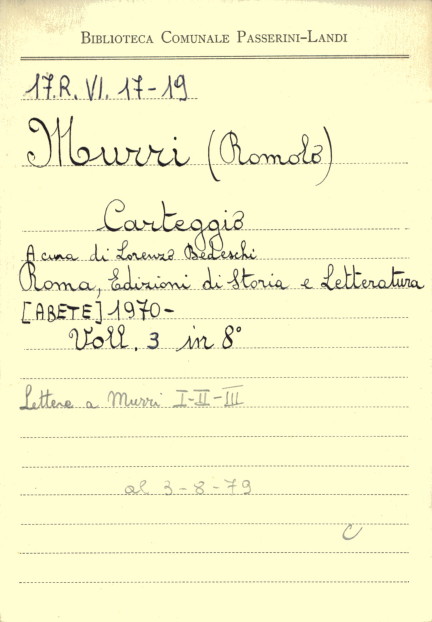 BIBLIOTECA COMUNALE PASSERINI-LANDI
17.R.VI.17-19
Murri (Romolo)
Carteggio
A cura di Lorenzo Bedeschi
Roma, Edizioni di Storia e Letteratura
[ABETE] 1970-
Voll. 3 in 8°
Lettere a Murri I-II-III
al 3-8-79
C